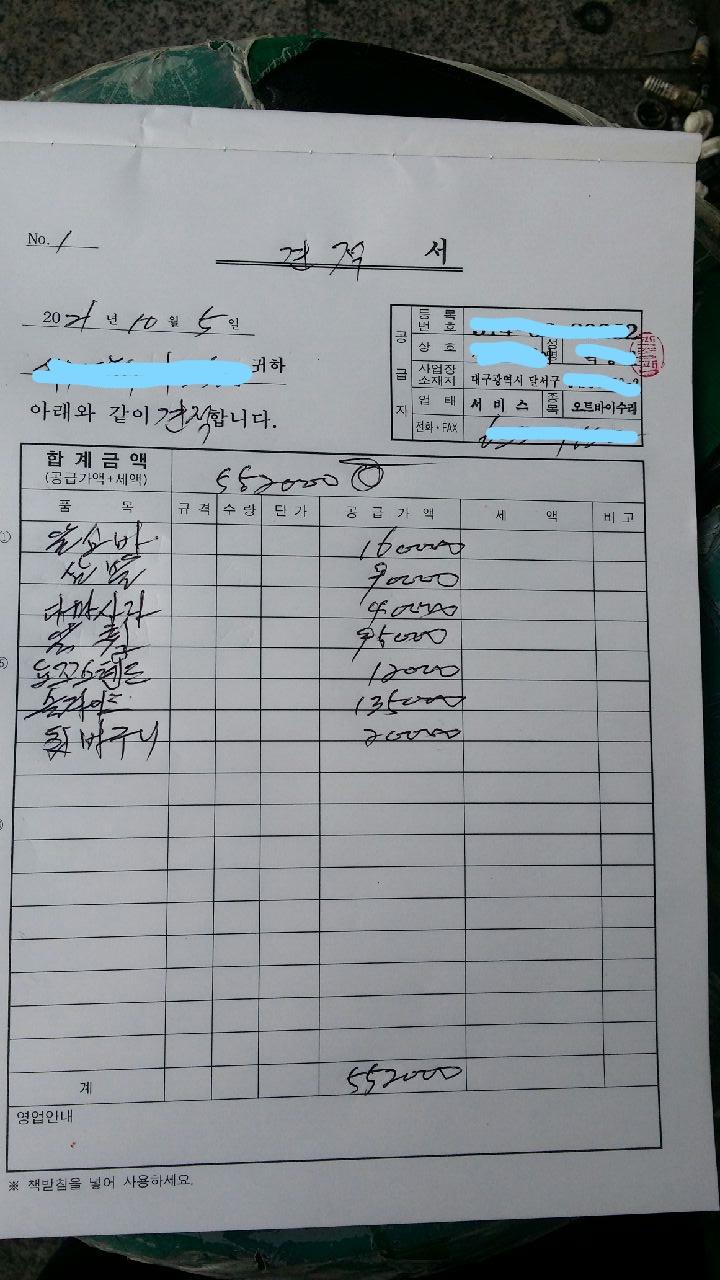 No. 1
견 적 서
2021 년 10 월 5 일
귀하
아래와 같이 견적합니다.
공급자
등록번호
상호 성명
사업장소재지 대구광역시 달서구
업태 서비스 종목 오트바이수리
전화·FAX
합계금액 (공급가액+세액) 552000
품 목 규격 수량 단가 공급가액 세액 비고
앞쇼바 160000
90000
40000
95000
12000
135000
뒷바구니 20000
계 552000
영업안내
※ 책받침을 넣어 사용하세요.